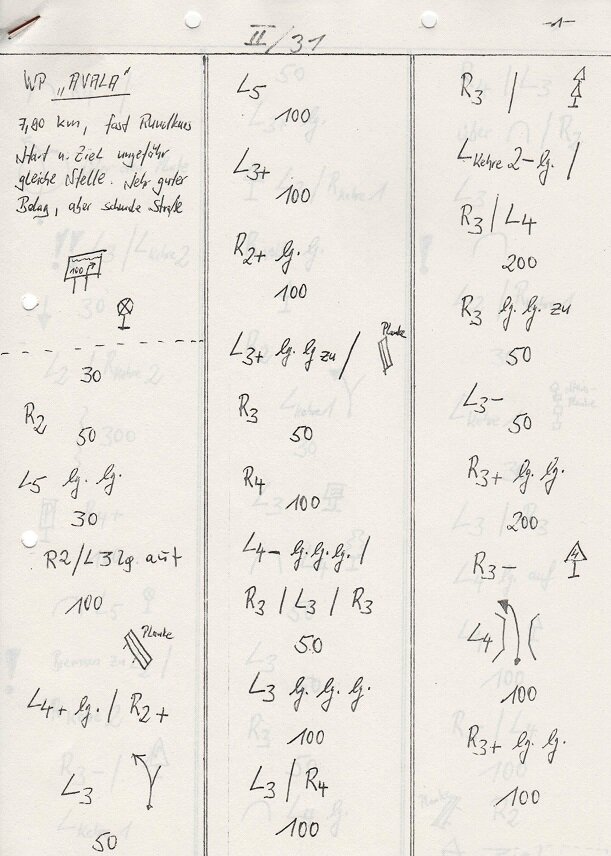 II/31
-1-
WP „AVALA"
7,80 km, fast Rundkurs
Start u. Ziel ungefähr
gleiche Stelle. Sehr guter
Belag, aber schmale Straße
100
30
R2
50
L5 lg. lg.
30
R2/L3 lg. auf
100
Planke
L4+ lg. / R2+
L3
50
L5
100
L3+
100
R2+ lg.
100
L3+ lg. lg zu /
Planke
R3
50
R4
100
L4- lg. lg. lg. /
R3 / L3 / R3
50
L3 lg. lg. lg.
100
L3 / R4
100
R3 /
LKehre 2- lg. /
R3 / L4
200
R3 lg. lg. zu
50
L3-
50
R3+ lg. lg.
200
R3-
L4
100
R3+ lg. lg.
100